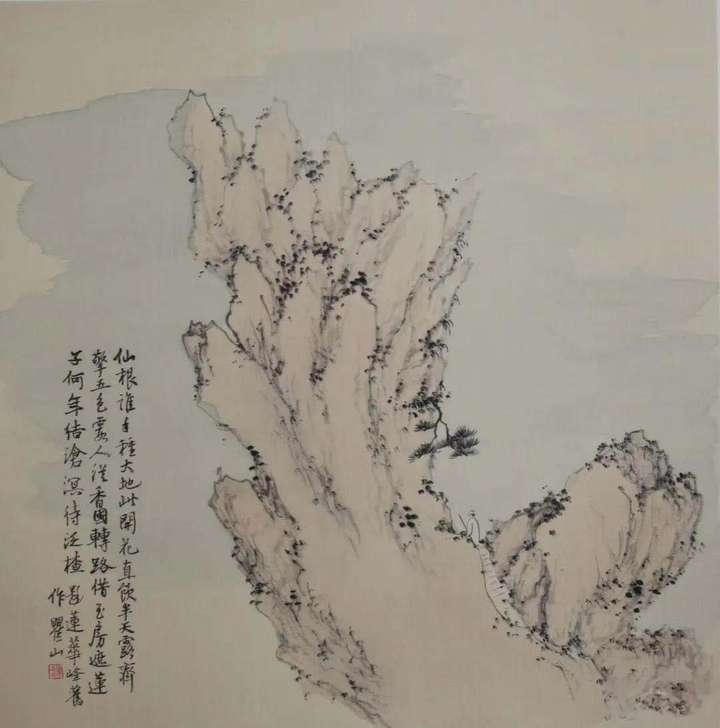 仙根誰手種大地此開花直飲半天露齊
擎五色霞人從香國轉路借玉房遮蓮
子何年結滄溟待泛楂題蓮華峰舊
作瞿山